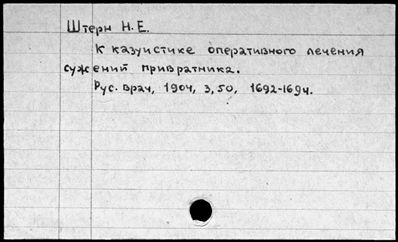 Штерн Н.Е.
К казуистике оперативного лечения
сужений привратника.
Рус. врач, 1904, 3, 50, 1692-1694.